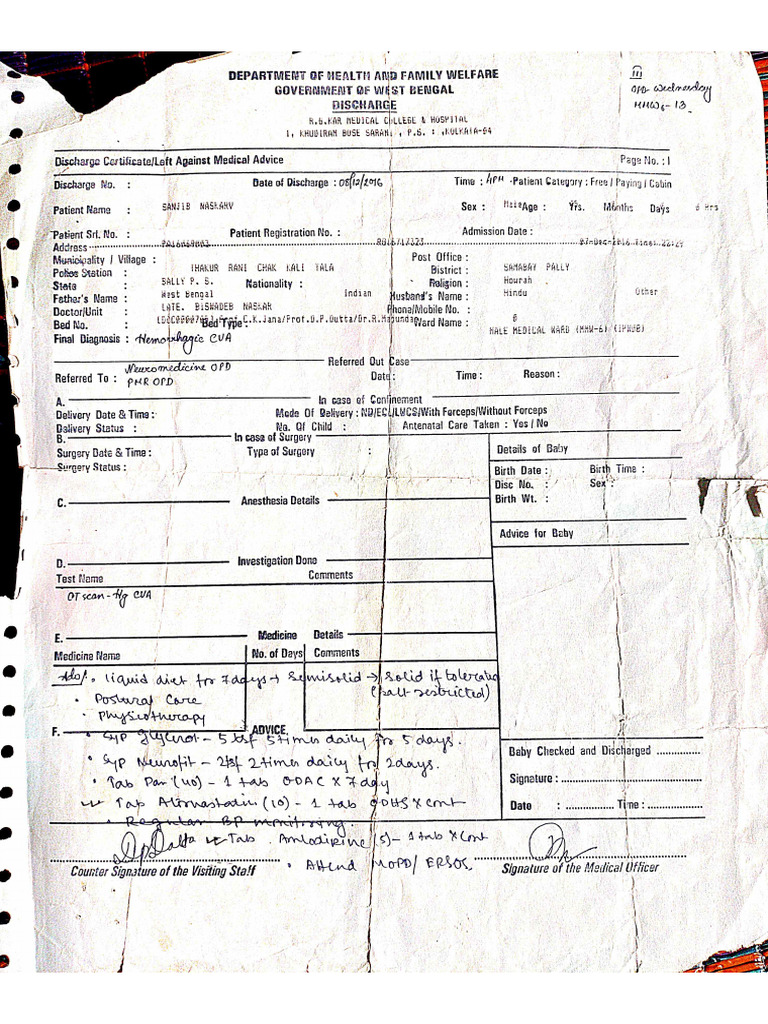 DEPARTMENT OF HEALTH AND FAMILY WELFARE
GOVERNMENT OF WEST BENGAL
DISCHARGE
R.G.KAR MEDICAL COLLEGE & HOSPITAL
1, KHUDIRAM BOSE SARANI, , P.S. : ,KOLKATA-04
III
OPD Wednesday
MMW6 - 13
Discharge Certificate/Left Against Medical Advice Page No. : 1
Discharge No. : Date of Discharge : 08/12/2016 Time : 4PM Patient Category : Free / Paying / Cabin
Patient Name : SANJIB NASKARV Sex : Male Age : Yrs. Months Days 0 Hrs
Patient Srl. No. : Patient Registration No. : Admission Date :
Address
Municipality / Village : THAKUR RANI CHAK KALI TALA Post Office :
Police Station : District : SAMABAY PALLY
State : BALLY P. S. Nationality : Religion : Howrah
Father's Name : West Bengal Indian Husband's Name : Hindu Other
Doctor/Unit : LATE. BISWADEB NASKAR Phone/Mobile No. :
Bed No. : Prof.C.K.Jana/Prof.D.P.Dutta/Dr.R.Majumdar Bed Type : Ward Name : 6
MALE MEDICAL WARD (MMW-6)
Final Diagnosis : Hemorrhagic CVA
Referred Out Case
Neuromedicine OPD
Referred To : PMR OPD Date : Time : Reason :
A. In case of Confinement
Delivery Date & Time : Mode Of Delivery : ND/ECL/LUCS/With Forceps/Without Forceps
Delivery Status : No. Of Child : Antenatal Care Taken : Yes / No
B. In case of Surgery
Surgery Date & Time : Type of Surgery :
Surgery Status :
Details of Baby
Birth Date : Birth Time :
Disc No. : Sex :
Birth Wt. :
C. Anesthesia Details
Advice for Baby
D. Investigation Done
Test Name Comments
CT scan - Hg CVA
E. Medicine Details
Medicine Name No. of Days Comments
Adv • liquid diet for 7 days → Semisolid → solid if tolerate
(salt restricted)
• Postural Care
• Physiotherapy
F. ADVICE
• Syp Glycerol - 5 tsf 5 times daily for 5 days.
• Syp Neurofit - 2tsf 2 times daily for 2days.
• Tab Pan (40) - 1 tab ODAC X 7 day
Tab Atorvastatin (10) - 1 tab ODHS X cont
• Regular BP monitoring.
Tab. Amlodipine (5) - 1 tab X Cont
• Attend MOPD/ ERSOS
Baby Checked and Discharged
Signature :
Date : Time :
Counter Signature of the Visiting Staff
Signature of the Medical Officer